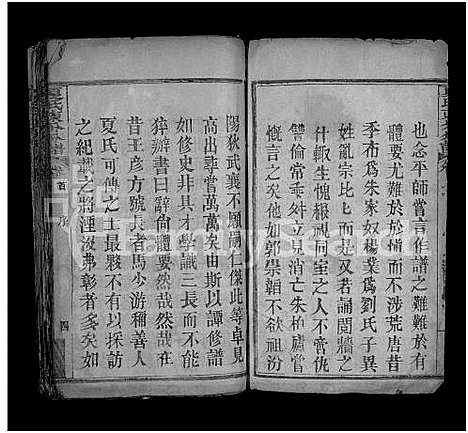 也念平師嘗言作譜之難難於有
體要尤難於於慎而不涉荒唐昔
季布爲朱家奴楊業爲劉氏子異
姓亂宗比比而是又若誦閥牆之
什輒生愧報視同室之人不啻仇
讐倫常乖舛立見消亡朱柏廬嘗
慨乎言之他如郭崇韜不欲祖汾
陽狄武襄不願嗣仁傑此等卓見
高出尋常萬萬矣由斯以譚修譜
如修史非具才學識三長而不能
猝辦書曰辭尚體要然哉然哉
昔王彥方號長者馬少游稱善人
夏氏可傳之士最夥不有以採訪
之紀載之將湮汝弗彰者多矣如
首
序
四